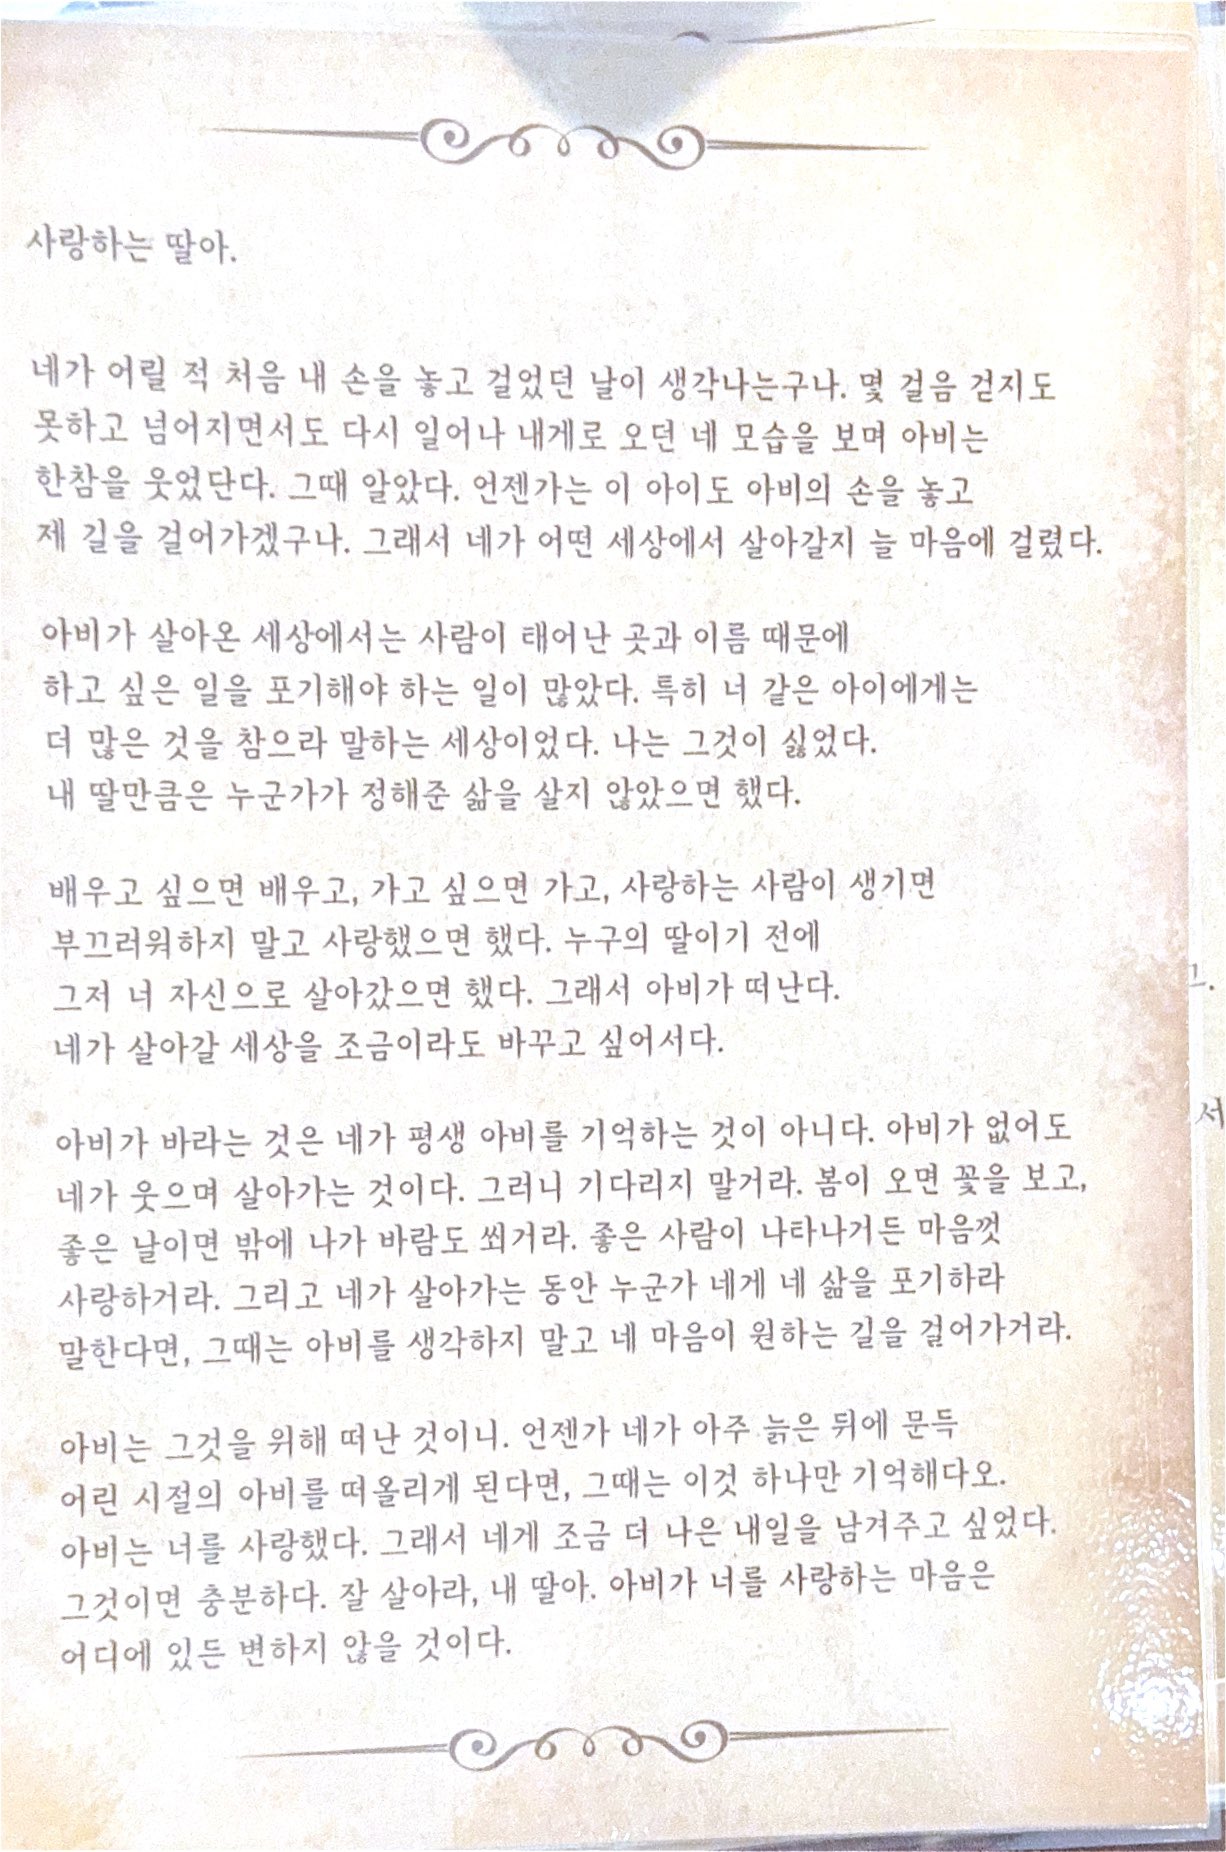 사랑하는 딸아.
네가 어릴 적 처음 내 손을 놓고 걸었던 날이 생각나는구나. 몇 걸음 걷지도
못하고 넘어지면서도 다시 일어나 내게로 오던 네 모습을 보며 아비는
한참을 웃었단다. 그때 알았다. 언젠가는 이 아이도 아비의 손을 놓고
제 길을 걸어가겠구나. 그래서 네가 어떤 세상에서 살아갈지 늘 마음에 걸렸다.
아비가 살아온 세상에서는 사람이 태어난 곳과 이름 때문에
하고 싶은 일을 포기해야 하는 일이 많았다. 특히 너 같은 아이에게는
더 많은 것을 참으라 말하는 세상이었다. 나는 그것이 싫었다.
내 딸만큼은 누군가가 정해준 삶을 살지 않았으면 했다.
배우고 싶으면 배우고, 가고 싶으면 가고, 사랑하는 사람이 생기면
부끄러워하지 말고 사랑했으면 했다. 누구의 딸이기 전에
그저 너 자신으로 살아갔으면 했다. 그래서 아비가 떠난다.
네가 살아갈 세상을 조금이라도 바꾸고 싶어서다.
아비가 바라는 것은 네가 평생 아비를 기억하는 것이 아니다. 아비가 없어도
네가 웃으며 살아가는 것이다. 그러니 기다리지 말거라. 봄이 오면 꽃을 보고,
좋은 날이면 밖에 나가 바람도 쐬거라. 좋은 사람이 나타나거든 마음껏
사랑하거라. 그리고 네가 살아가는 동안 누군가 네게 네 삶을 포기하라
말한다면, 그때는 아비를 생각하지 말고 네 마음이 원하는 길을 걸어가거라.
아비는 그것을 위해 떠난 것이니. 언젠가 네가 아주 늙은 뒤에 문득
어린 시절의 아비를 떠올리게 된다면, 그때는 이것 하나만 기억해다오.
아비는 너를 사랑했다. 그래서 네게 조금 더 나은 내일을 남겨주고 싶었다.
그것이면 충분하다. 잘 살아라, 내 딸아. 아비가 너를 사랑하는 마음은
어디에 있든 변하지 않을 것이다.
서